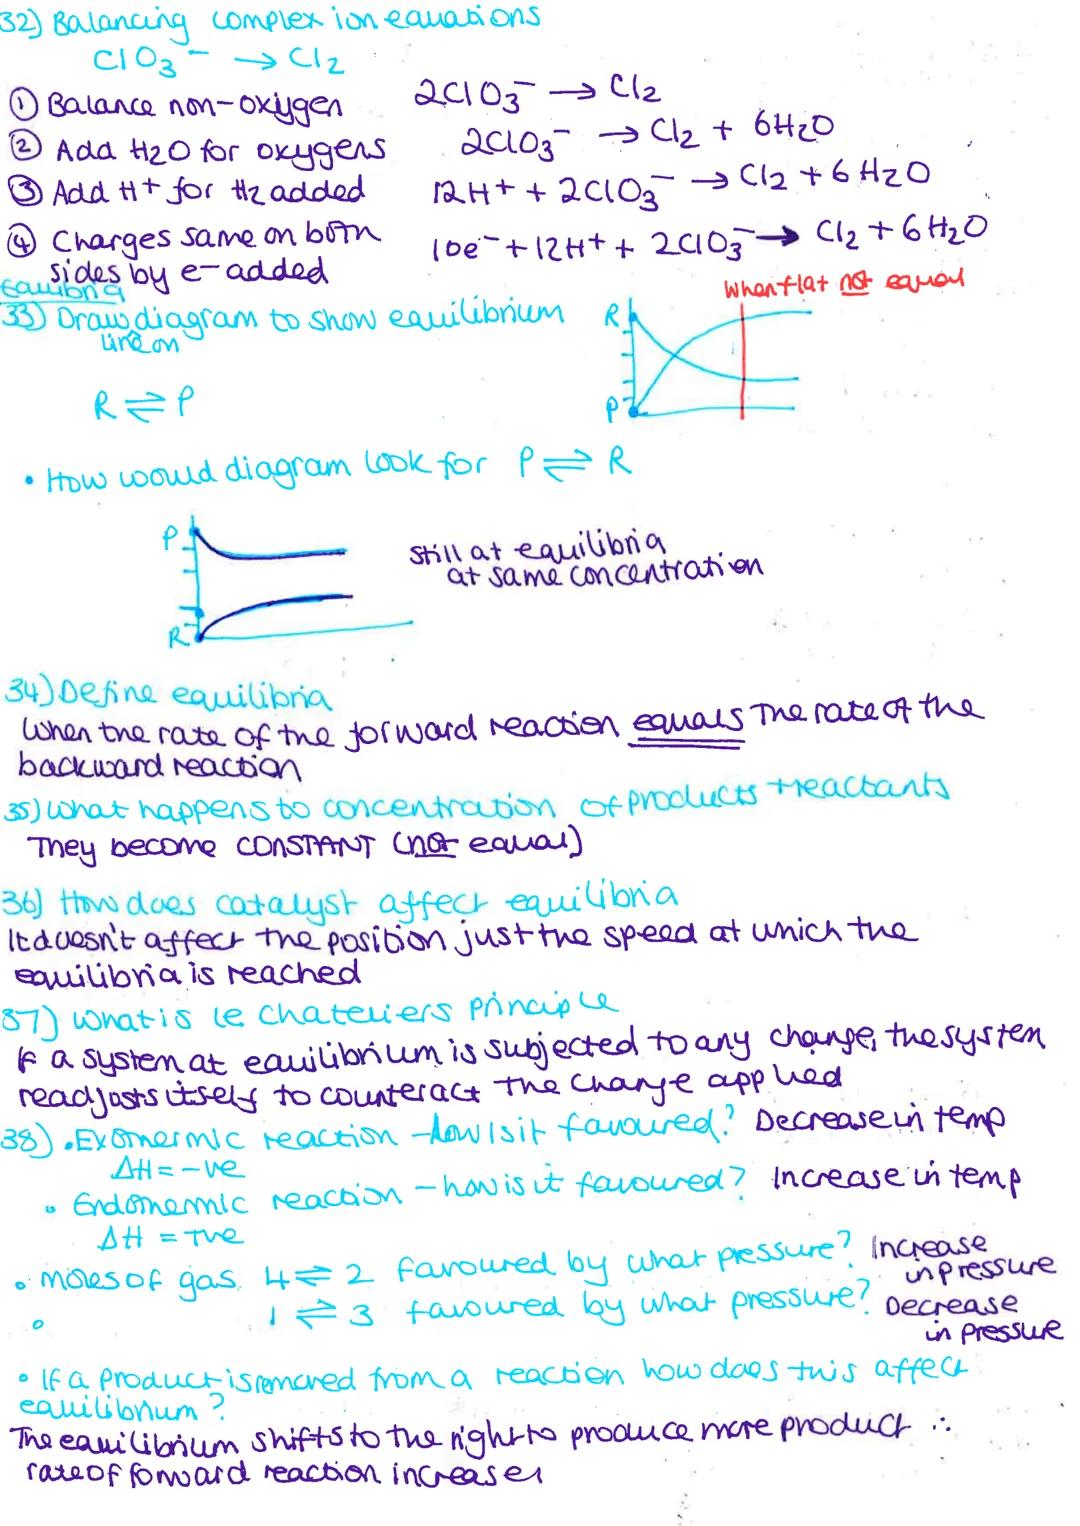 32) Balancing complex ion equations
ClO3⁻ → Cl2
① Balance non-oxygen 2ClO3⁻ → Cl2
② Add H2O for oxygens 2ClO3⁻ → Cl2 + 6H2O
③ Add H+ for H2 added 12H+ + 2ClO3⁻ → Cl2 + 6H2O
④ Charges same on both sides by e- added 10e⁻ + 12H+ + 2ClO3⁻ → Cl2 + 6H2O
Equilibria
33) Draw line on diagram to show equilibrium
When flat not equal
R
P
R ⇌ P
• How would diagram look for P ⇌ R
P
R
Still at equilibria
at same concentration
34) Define equilibria
When the rate of the forward reaction equals the rate of the
backward reaction
35) What happens to concentration of products + reactants
They become CONSTANT (not equal)
36) How does catalyst affect equilibria
It doesn't affect the position just the speed at which the
equilibria is reached
37) What is le chateliers principle
If a system at equilibrium is subjected to any change, the system
readjusts itself to counteract the change applied
38) • Exothermic reaction – how is it favoured? Decrease in temp
ΔH = -ve
• Endothermic reaction – how is it favoured? Increase in temp
ΔH = +ve
• moles of gas 4 ⇌ 2 favoured by what pressure? Increase in pressure
• 1 ⇌ 3 favoured by what pressure? Decrease in pressure
• If a product is removed from a reaction how does this affect
equilibrium?
The equilibrium shifts to the right to produce more product ∴
rate of forward reaction increases